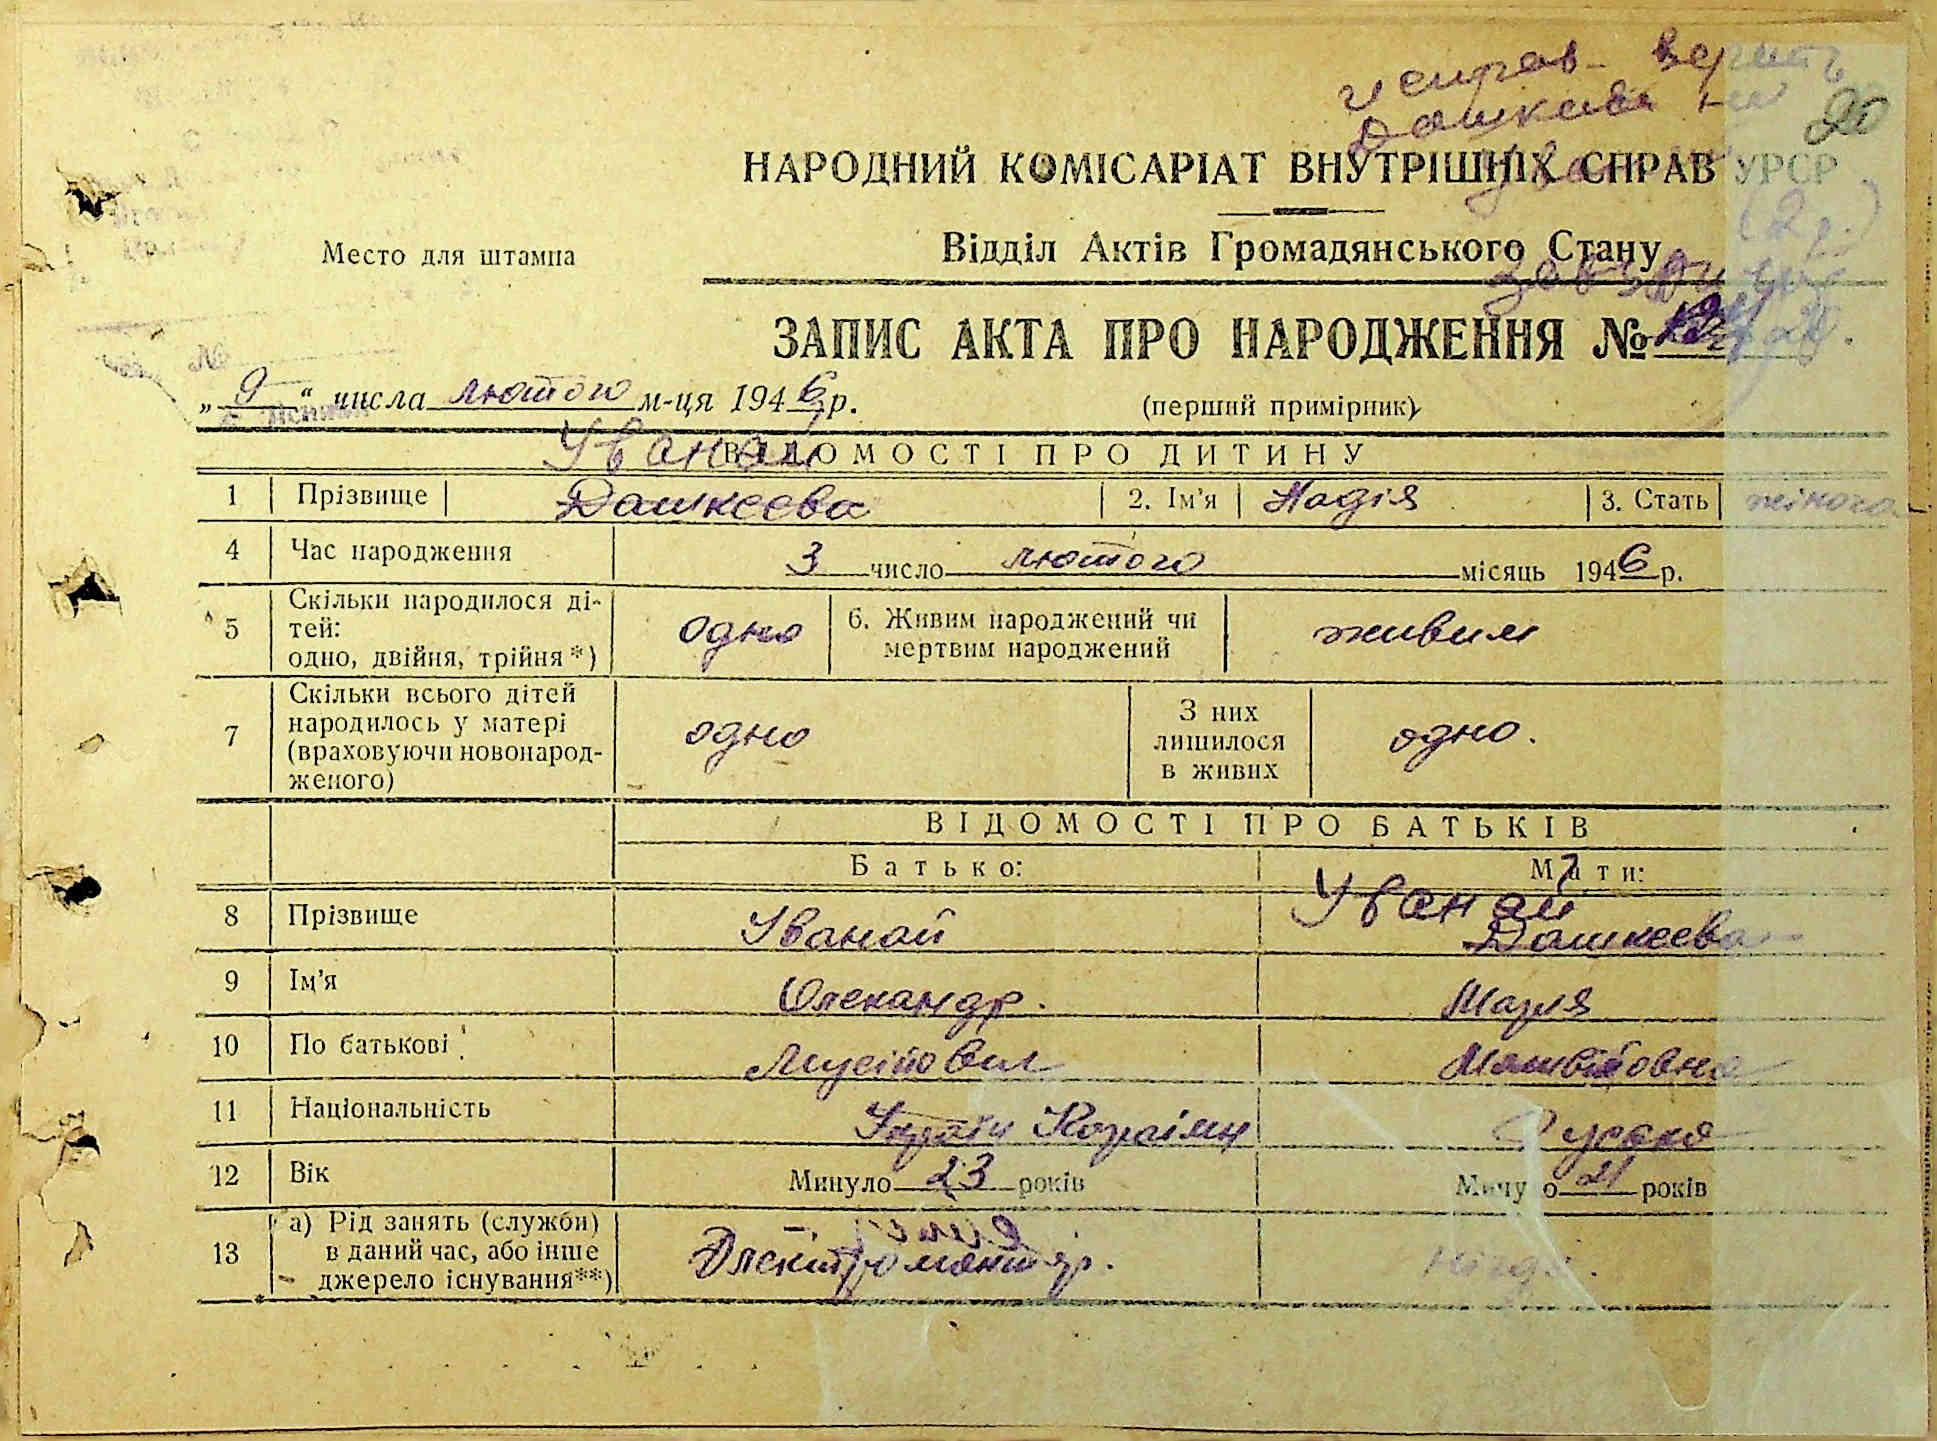 20
НАРОДНИЙ КОМІСАРІАТ ВНУТРІШНІХ СПРАВ УРСР
(2 р.)
Место для штампа
Відділ Актів Громадянського Стану
ЗАПИС АКТА ПРО НАРОДЖЕННЯ №
„ 9 “ числа лютого м-ця 1946 р.
(перший примірник)
Уванай
ВІДОМОСТІ ПРО ДИТИНУ
1 Прізвище Дашкеева 2. Ім'я Надія 3. Стать жіноча
4 Час народження 3 число лютого місяць 1946 р.
5 Скільки народилося ді-
тей:
одно, двійня, трійня*) одно 6. Живим народжений чи
мертвим народжений живим
7 Скільки всього дітей
народилось у матері
(враховуючи новонарод-
женого) одно З них
лишилося
в живих одно.
ВІДОМОСТІ ПРО БАТЬКІВ
Батько: Мати:
Уванай
8 Прізвище Уванай Дашкеева
9 Ім'я Олександр. Марія
10 По батькові Мусійович
11 Національність Караїм Руська
12 Вік Минуло 23 років Минуло 21 років
13 а) Рід занять (служби)
в даний час, або інше
джерело існування**) Электромонтер.